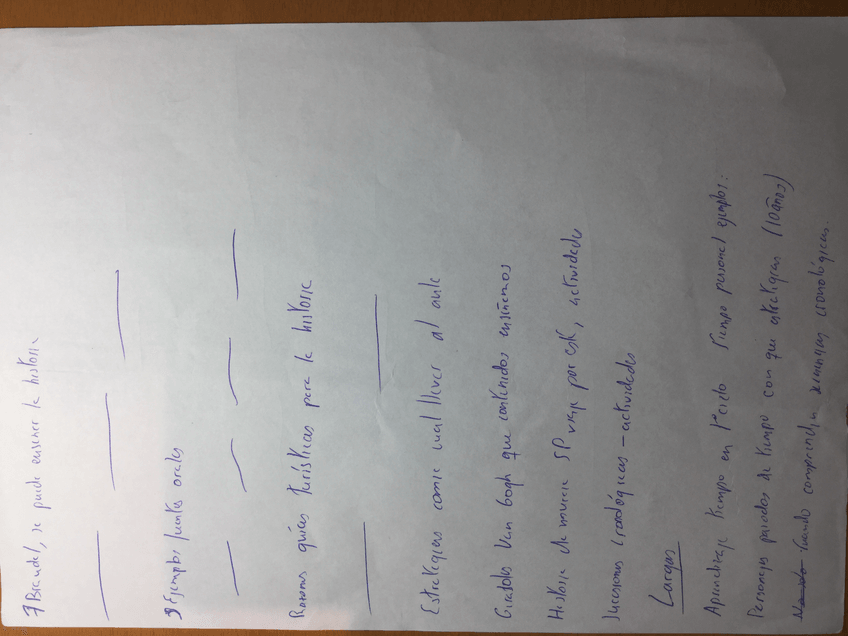 Braudel, se puede enseñar la historia
Ejemplos fuentes orales
Razones guías turísticas para la historia
Estrategias comic cual llevar al aula
Girasoles Van Gogh que contenidos enseñamos
Historia de murcia SP viaje por esk, actividades
Sucesiones cronológicas - actividades
Largas
Aprendizaje tiempo en 1er ciclo tiempo personal ejemplos:
Personajes pasados de tiempo con que estrategias (10 años)
Cuando comprenden secuencias cronológicas.